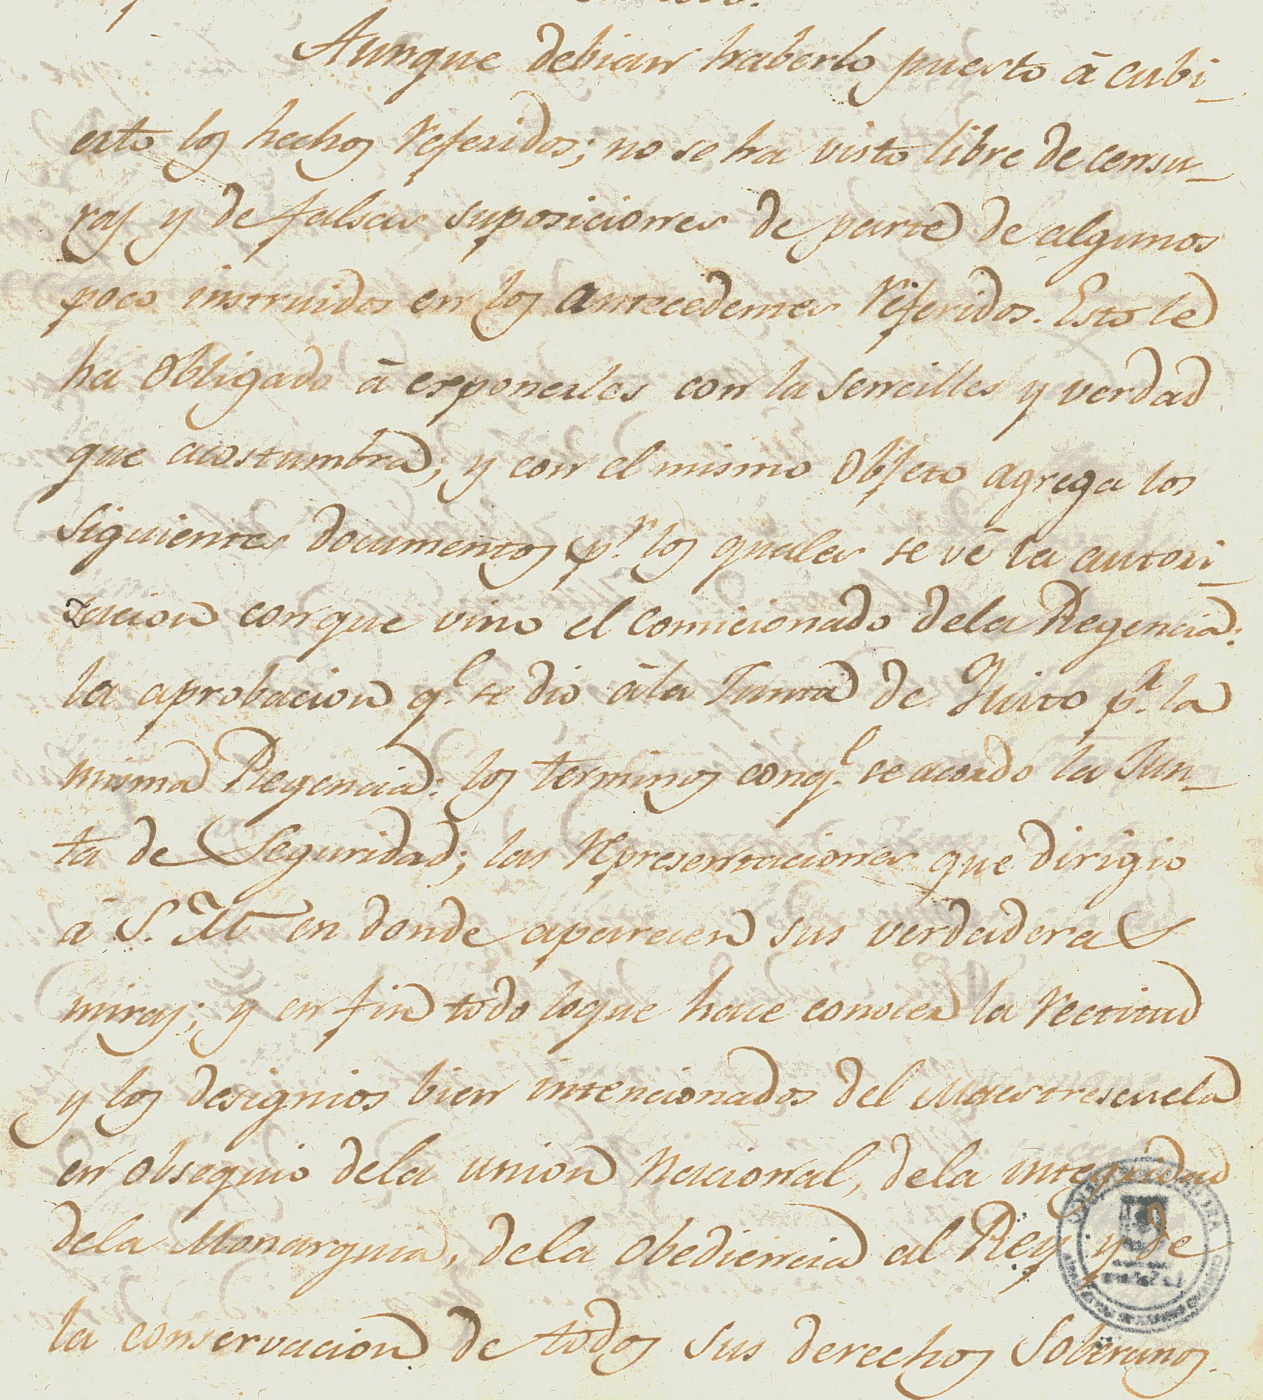 Aunque debian haberlo puesto â cubi_
erto los hechos referidos; no se ha visto libre de censu_
ras y de falsas suposiciones de parte de algunos
poco instruidos en los antecedentes referidos. Esto le
ha obligado â exponerles con la sencilles y verdad
que acostumbra; y con el mismo objeto agrega los
siguientes documentos pr. los quales se vê la autori_
zacion conque vino el comicionado dela Regencia:
la aprobacion q.e se dio âla Junta de Quito pr. la
misma Regencia: los terminos conq.e se acordo la Jun_
ta de Seguridad; las representaciones que dirigio
â S. M. en donde aparecen sus verdaderas
miras; y en fin todo loque hace conocer la rectitud
y los designios bien intencionados del Maestrescuela
en obsequio dela union nacional, dela integridad
dela Monarquia, dela obediencia al Rey y de
la conservacion de todos sus derechos soberanos.